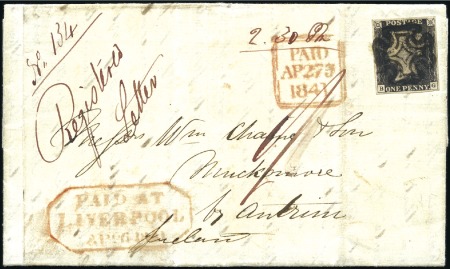 No. 134
2.30 PM
POSTAGE
ONE PENNY
PAID
AP 27
1841
Registered
Letter
Messrs Wm Chaine & Son
Muckamore
by Antrim
Ireland
PAID AT
LIVERPOOL